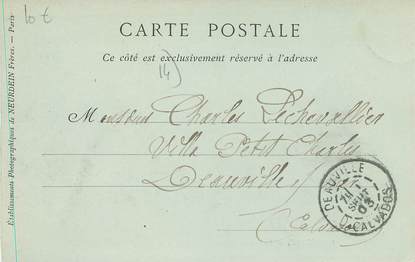 10 €
CARTE POSTALE
Ce côté est exclusivement réservé à l'adresse
14)
Monsieur Charles Lechevallier
Villa Petit Charles
Deauville
(Calvados
DEAUVILLE
SEPT
03
CALVADOS
Etablissements Photographiques de NEURDEIN Frères. — Paris